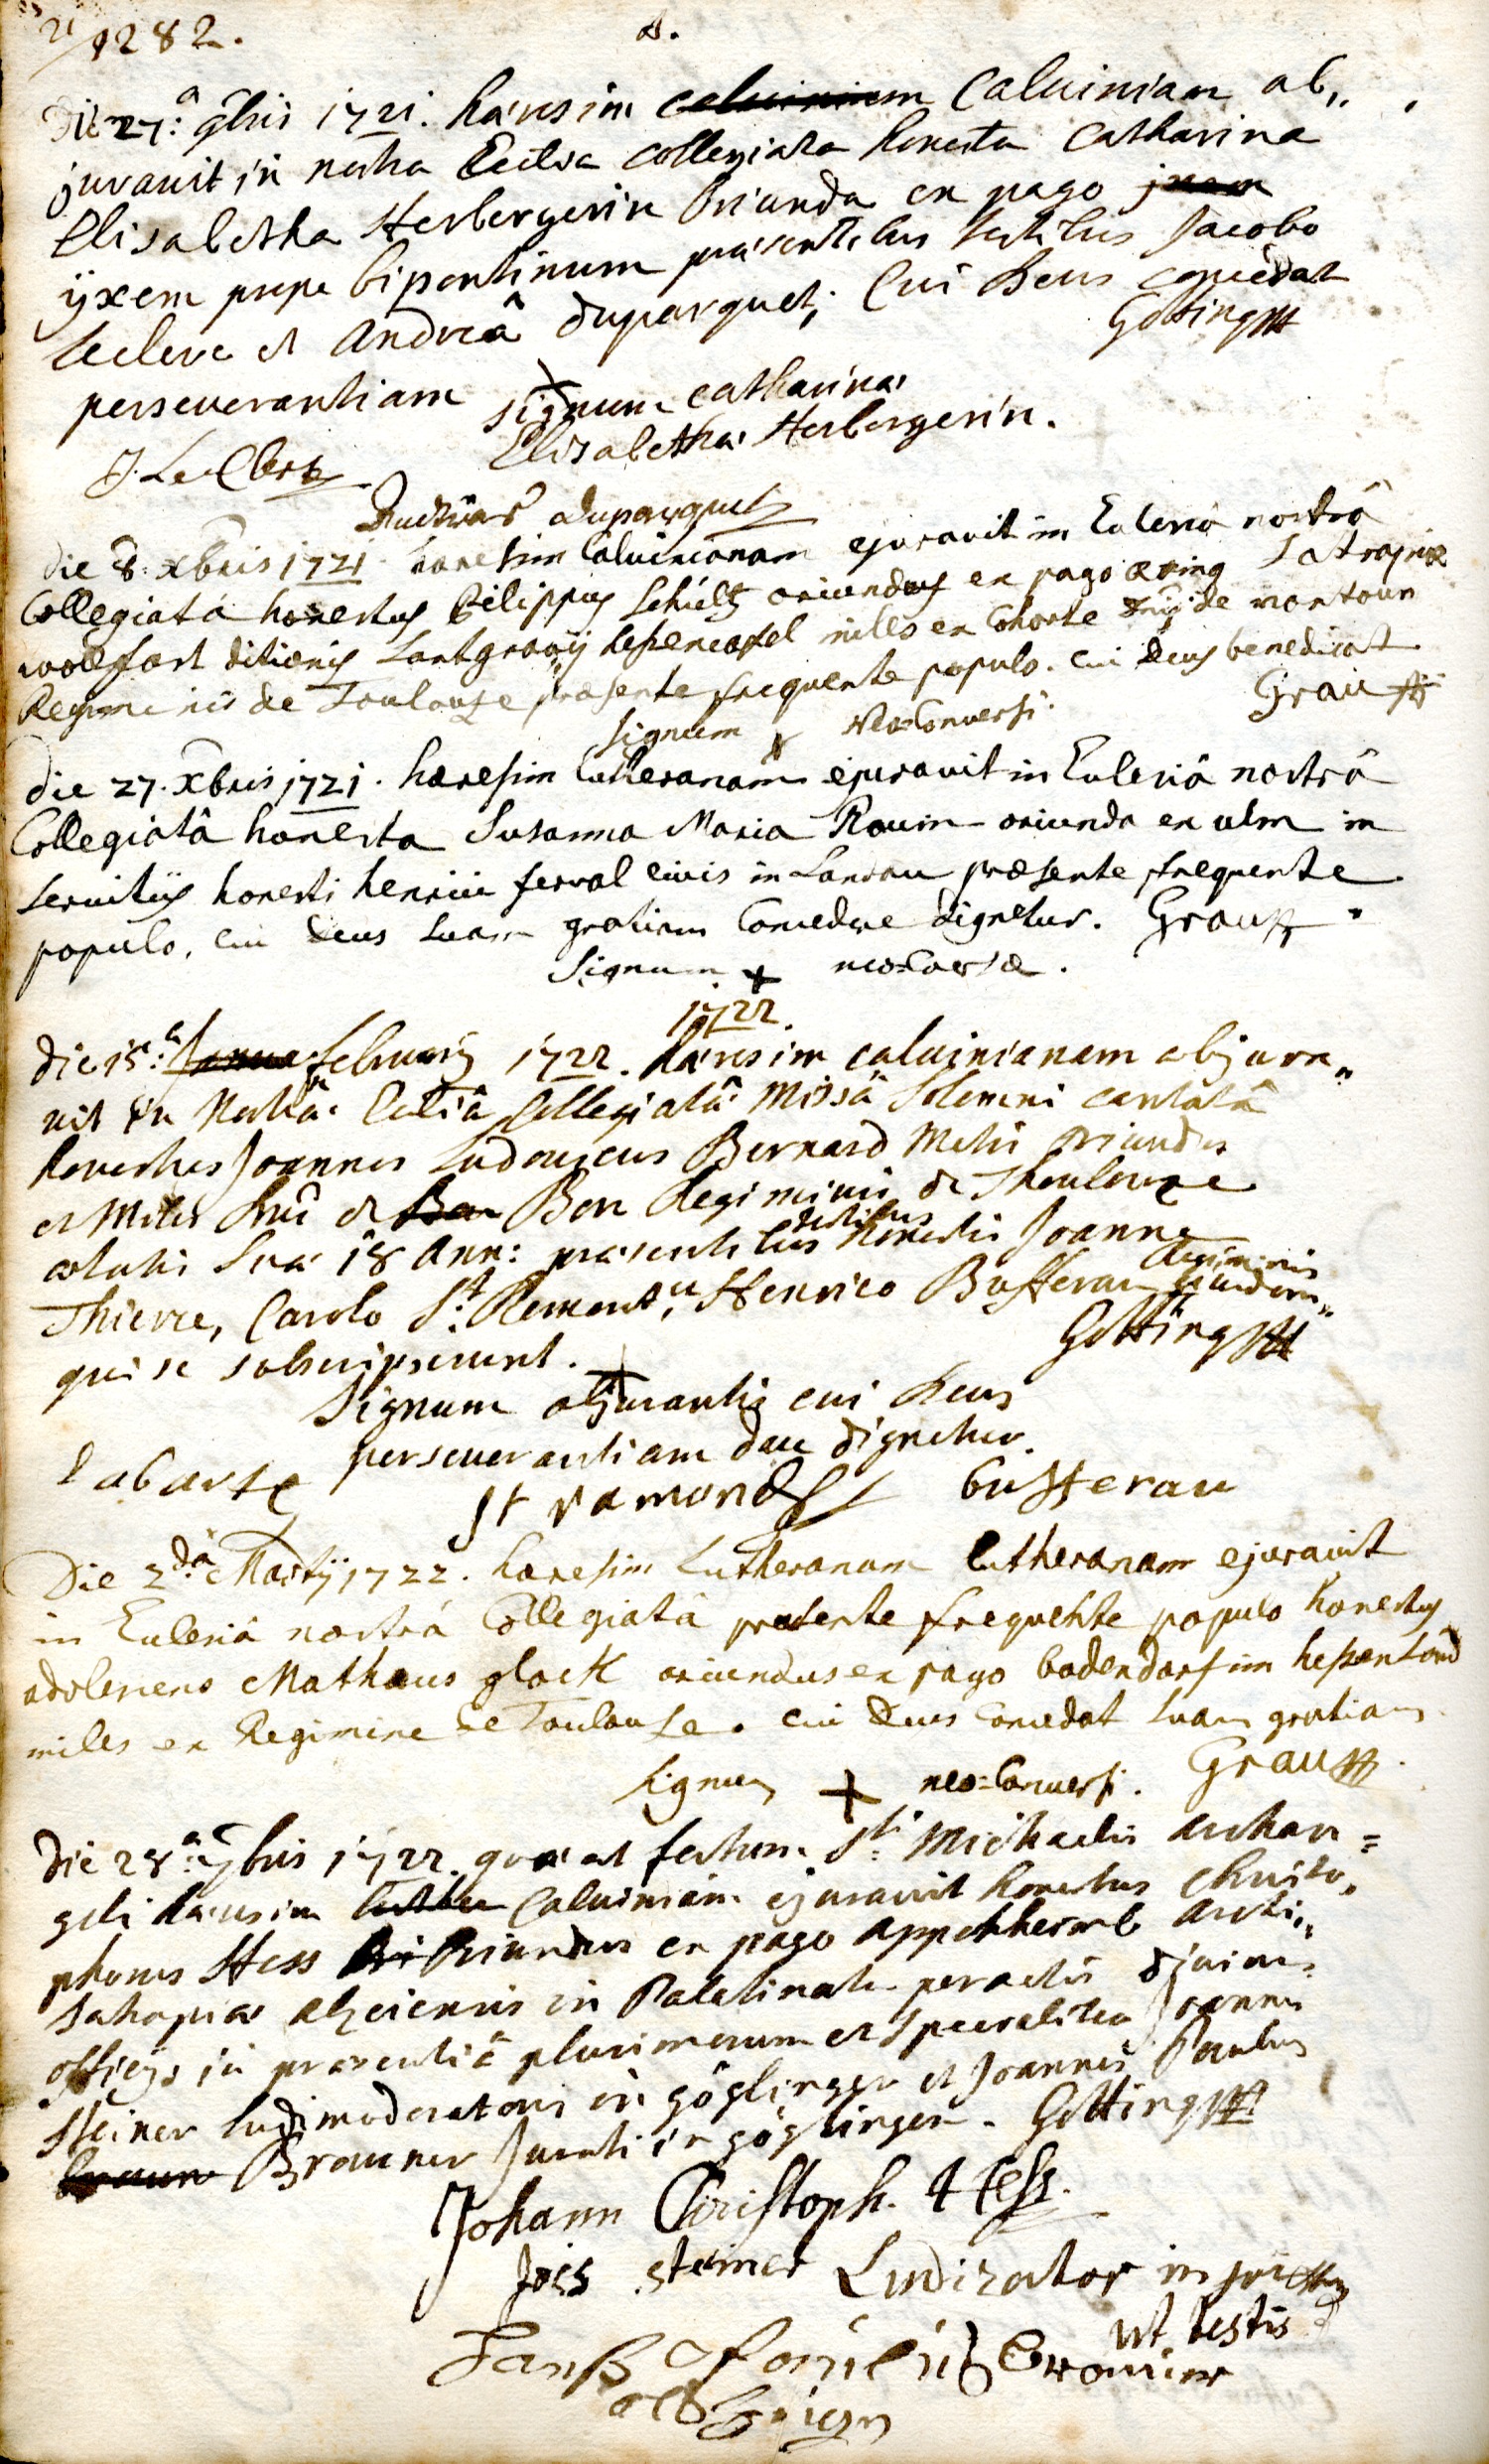 1282.
8.
Die 27:a 9bris 1721. hæresim Calvinian ab„
juravit in nostra Eccl̄ia Collegiata honesta Catharina
Elisabetha Herbergerin Oriunda ex pago
ÿxem prope bipontinum præsentibus testibus Jacobo
Leclerc et Andreâ duparquet, Cui Deus concedat
perseverantiam
Gotting
signum Catharinæ
Elisabethæ Herbergerin.
J. Le Clerk
duparquet
die 8. Xbris 1721. hæresim Calvinianam ejuravit in Ecclesiâ nostrâ
Collegiatâ honestus Philippus Schültz oriundus ex pago satrapiæ
ditionis Lantgravij miles ex Cohorte de
Regiminis de Toulouse præsente frequente populo. cui Deus benedicat
Signum + Neo=Conversi. Grau
die 27. Xbris 1721. hæresim Lutheranam ejuravit in Ecclesiâ nostrâ
Collegiatâ honesta Susanna Maria Rauin oriunda ex ulm in
servitijs honesti henrici ferval civis in Landau præsente frequente
populo, cui Deus suam gratiam Concedere dignetur. Grau
Signum + neo=Conversæ.
1722.
die 15:a februarij 1722. hæresim calvinianam abjura„
vit in Nostrâ Eccl̄iâ Collegiatâ Missâ Solemni cantatâ
honestus Joannes Ludovicus Bernard Oriundus
et Miles Bon Regiminis de Thoulouze
ætatis Suæ 18 Ann: præsentibus testibus honestis Joanne
Thierre, Carolo St. Remont, Henrico Bufferau Regiminis ejusdem„
qui se subscripserunt. Gotting
Signum abjurantis cui Deus
perseverantiam dare dignetur.
labarte st ramond bufferau
Die 2da Martij 1722. hæresim Lutheranam lutheranam ejuravit
in Ecclesiâ nostrâ Collegiatâ præsente frequente populo honestus
adolescens Mathæus glock oriundus ex pago bodendorf im heßenland
miles ex Regimine de Toulouse. cui Deus Concedat suam gratiam.
Signum + neo=Conversi. Grau
Die 29:a 7bris 1722. quæ est festum Sti Michaelis Archan=
geli hæresim Calvinian ejuravit honestus Christo„
phorus Hess Oriundus ex pago
Satrapiæ Alzeiensis in Palatinatu peractis divinis
officijs in præsentiâ plurimorum et specialiter Joannis
Steiner ludimoderatoris in göglingen et Joannis Paulus
Brauner Jurati in göglingen. Gotting
Johann Christoph. Heß.
Jois steiner Ludirector in
ut testis
Brauner